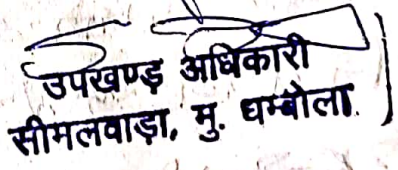 उपखण्ड अधिकारी
सीमलवाड़ा, मु. धम्बोला